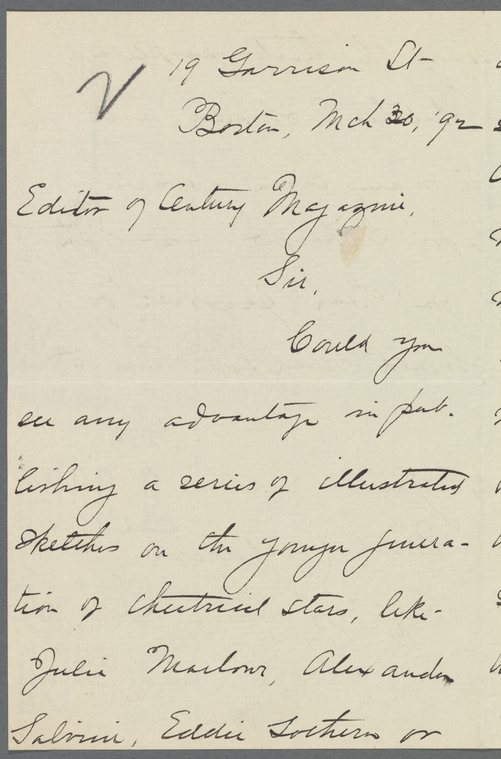 19 Garrison St-
Boston, Mch 30, '92
Editor of Century Magazine,
Sir,
Could you
see any advantage in pub-
lishing a series of illustrated
sketches on the younger genera-
tion of theatrical stars, like
Julia Marlowe, Alexander
Salvini, Eddie Sothern or